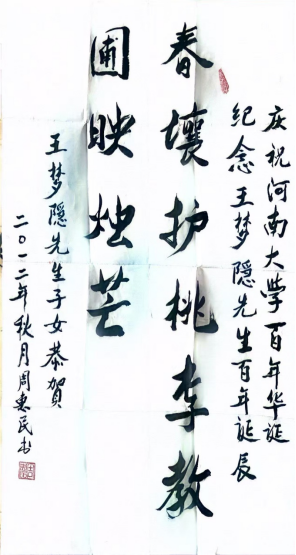 庆祝河南大学百年华诞
纪念王梦隐先生百年诞辰
春壤护桃李教
圃映烛芒
王梦隐先生子女恭賀
二〇一二年秋月周惠民书